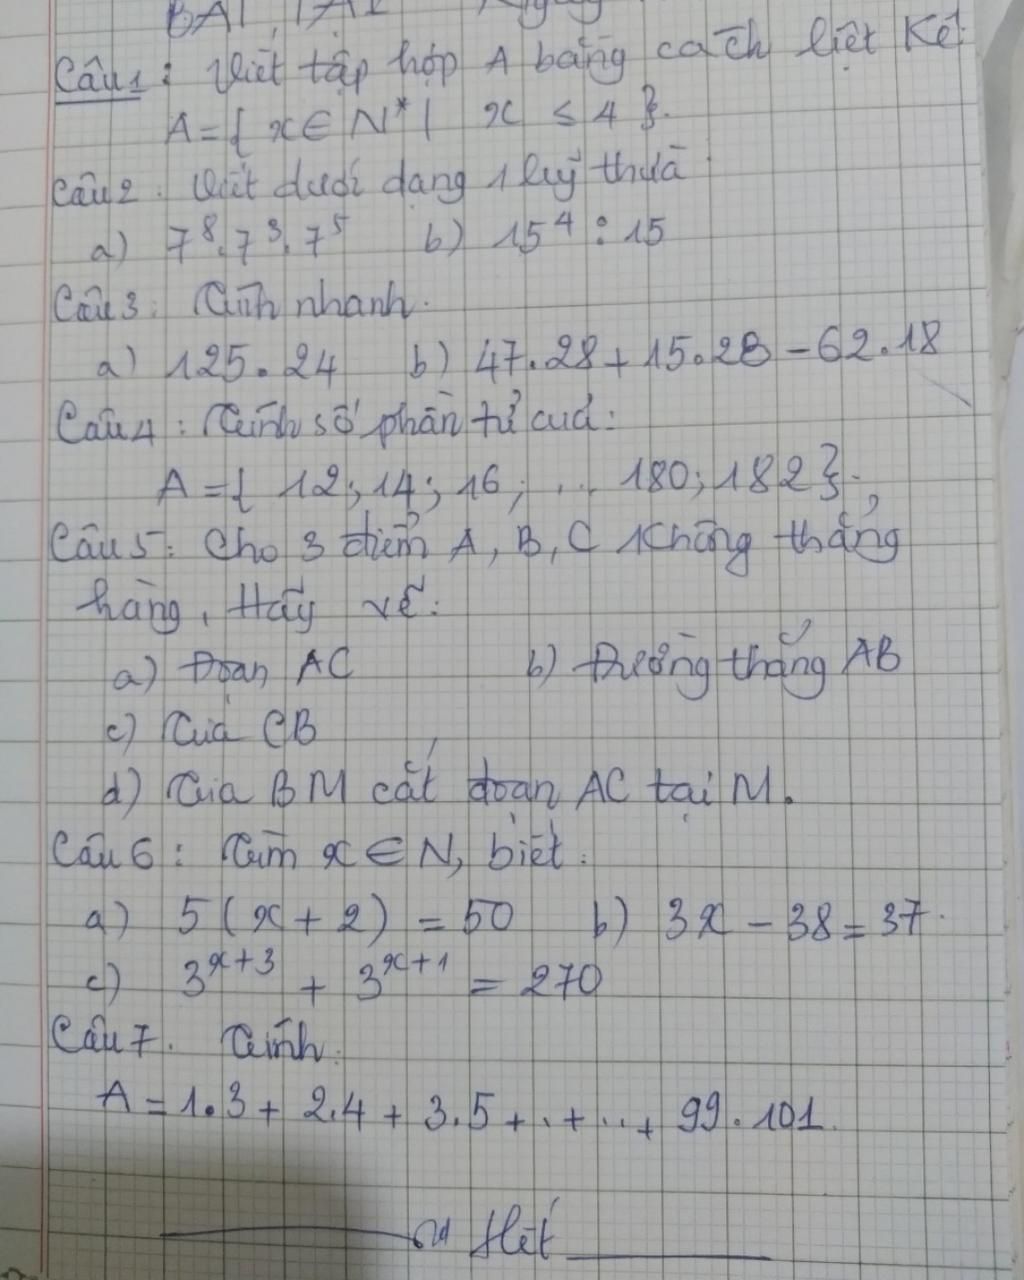 Câu 1: Viết tập hợp A bằng cách liệt kê:
A = { x ∈ N* | x ≤ 4 }.
Câu 2: Viết dưới dạng 1 luỹ thừa
a) 7⁸.7³.7⁵ b) 15⁴ : 15
Câu 3: Tính nhanh.
a) 125.24 b) 47.28 + 15.28 - 62.18
Câu 4: Tính số phần tử của:
A = { 12; 14; 16; ... 180; 182 };
Câu 5: Cho 3 điểm A, B, C không thẳng
hàng, Hãy vẽ:
a) Đoạn AC b) Đường thẳng AB
c) Tia CB
d) Tia BM cắt đoạn AC tại M.
Câu 6: Tìm x ∈ N, biết:
a) 5(x + 2) = 50 b) 3x - 38 = 37.
c) 3ˣ⁺³ + 3ˣ⁺¹ = 270
Câu 7. Tính:
A = 1.3 + 2.4 + 3.5 + . + ... + 99.101.
Hết